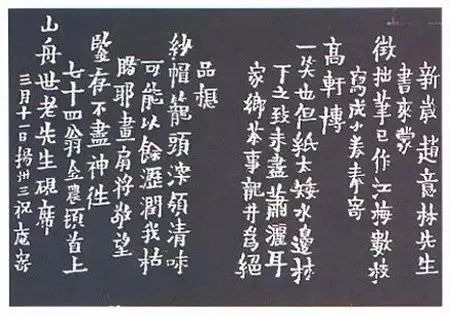 新歲趙意林先生
書來蒙
徵拙筆已作江梅數枝
寫成小卷奉寄
高軒博
一笑也但紙太矮水邊林
下之致未盡蕭灑耳
家鄉茶事龍井爲絕
品想
紗帽籠頭深領清味
可能以餘瀝潤我枯
腸耶畫扇將敬望
鑒存不盡神往
七十四翁金農頓首上
山舟世老先生硯席
三月十一日揚州三祝庵寄